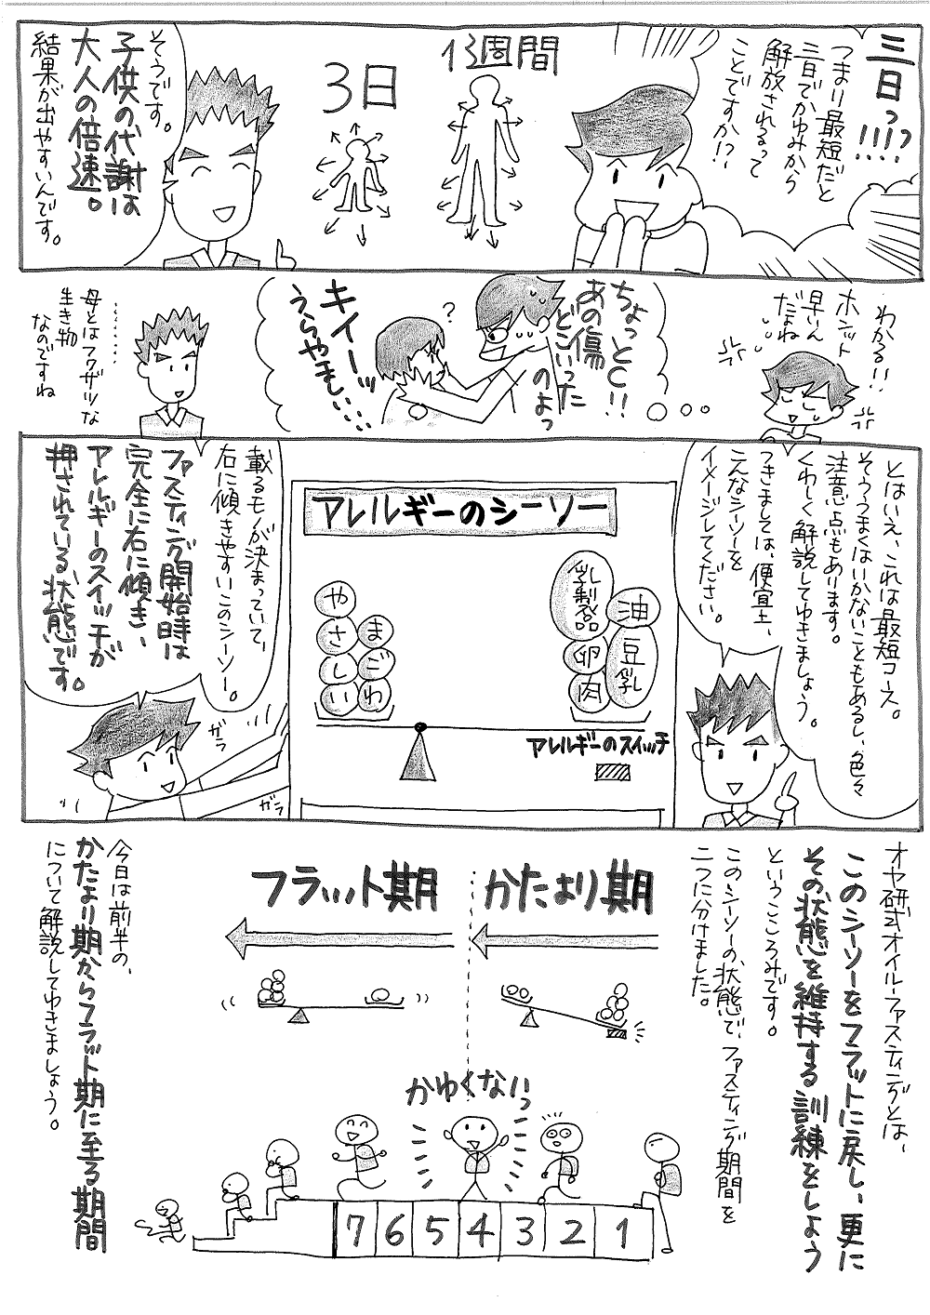 三日っ!!!!?
つまり最短だと
三日でかゆみから
解放されるって
ことですか!?
13週間
3日
そうです。
子供の代謝は
大人の倍速。
結果が出やすいんです。
わかる!!
ホント
早いん
だよね
ちょっとC!!
あの傷
どこいった
のよっ
?
キイーッ
うらやましい…
………
母とはフクザツな
生き物
なのですね
とはいえ、これは最短コース。
そううまくはいかないこともあるし、色々
注意点もあります。
くわしく解説してゆきましょう。
つきましては、便宜上、
こんなシーソーを
イメージしてください。
アレルギーのシーソー
や
さ
し
い
ま
ご
わ
乳製品
卵
肉
油
豆乳
アレルギーのスイッチ
載るモノが決まっていて、
右に傾きやすいこのシーソー。
ファスティング開始時は
完全に右に傾き、
アレルギーのスイッチが
押されている状態です。
ガラ
ガラ
オヤ研式オイル・ファスティングとは、
このシーソーをフラットに戻し、更に
その状態を維持する訓練をしよう
というこころみです。
このシーソーの状態で、ファスティング期間を
二つに分けました。
かたより期
フラット期
かゆくないっ
7 6 5 4 3 2 1
今日は前半の、
かたより期からフラット期に至る期間
について解説してゆきましょう。